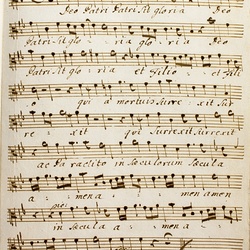 Deo Patri Patri sit gloria Deo
Patri sit glo- ria glo- ria Deo
Patri sit glo- ria et Filio et Fili-
o qui a mortuis surre- xit sur
re- xit qui surrexit, surrexit
ac Paraclito in sæculorum sæcula
a- men a- men amen
in sæcula a- men a